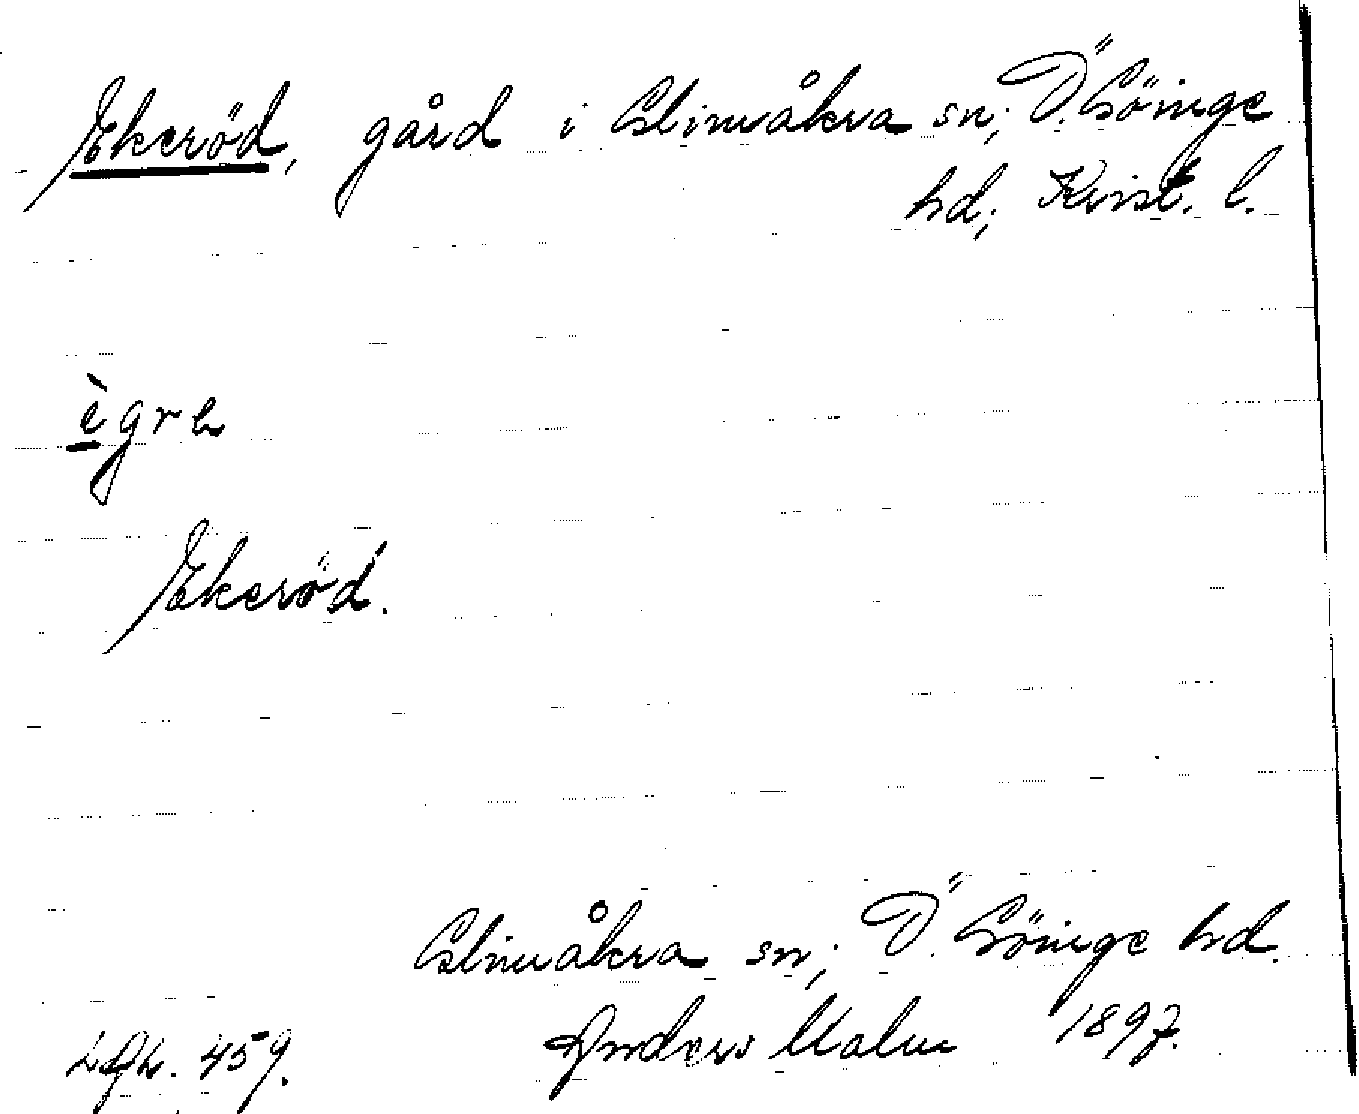 Ekeröd, gård i Glimåkra sn; Ö. Göinge
hd; Krist. l.
ègre
Ekeröd.
Glimåkra sn; Ö. Göinge hd.
Anders Malm 1897.
459.